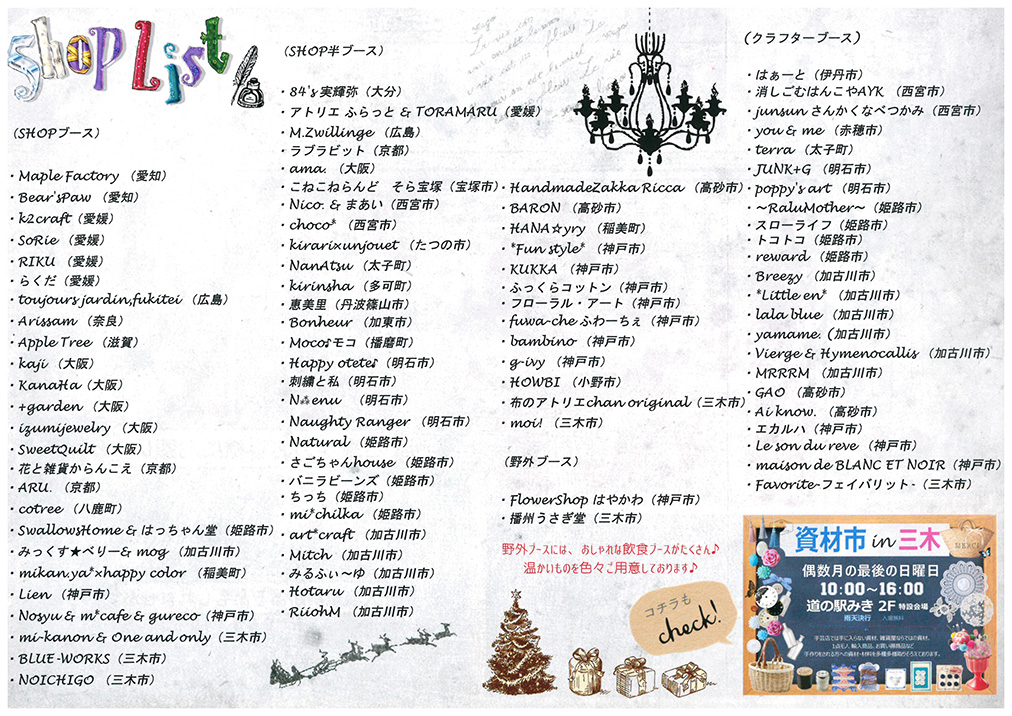 SHOP List
(SHOPブース)
・Maple Factory (愛知)
・Bear'sPaw (愛知)
・k2craft(愛媛)
・SoRie (愛媛)
・RIKU (愛媛)
・らくだ(愛媛)
・toujours jardin,fukitei (広島)
・Arissam (奈良)
・Apple Tree (滋賀)
・kaji (大阪)
・KanaHa(大阪)
・+garden (大阪)
・izumijewelry (大阪)
・SweetQuilt (大阪)
・花と雑貨からんこえ(京都)
・ARU. (京都)
・cotree (八鹿町)
・SwallowsHome & はっちゃん堂(姫路市)
・みっくす★べりー& mog (加古川市)
・mikan.ya*×happy color (稲美町)
・Lien (神戸市)
・Nosyu & m*cafe & gureco(神戸市)
・mi-kanon & One and only(三木市)
・BLUE-WORKS(三木市)
・NOICHIGO (三木市)
(SHOP半ブース)
・84's 実輝弥(大分)
・アトリエ ふらっと & TORAMARU(愛媛)
・M.Zwillinge (広島)
・ラブラビット(京都)
・ama. (大阪)
・こねこねらんど そら宝塚(宝塚市)
・Nico. & まあい(西宮市)
・choco* (西宮市)
・kirarixunjouet (たつの市)
・NanAtsu (太子町)
・kirinsha (多可町)
・恵美里(丹波篠山市)
・Bonheur (加東市)
・Moco♪モコ(播磨町)
・Happy otete♪ (明石市)
・刺繍と私(明石市)
・N⁂enu (明石市)
・Naughty Ranger (明石市)
・Natural (姫路市)
・さごちゃんhouse (姫路市)
・バニラビーンズ(姫路市)
・ちっち(姫路市)
・mi*chilka (姫路市)
・art*craft (加古川市)
・Mitch (加古川市)
・みるふぃ~ゆ(加古川市)
・Hotaru (加古川市)
・RiiohM (加古川市)
・HandmadeZakka Ricca (高砂市)
・BARON (高砂市)
・HANA☆yry (稲美町)
・*Fun style* (神戸市)
・KUKKA (神戸市)
・ふっくらコットン(神戸市)
・フローラル・アート(神戸市)
・fuwa-che ふわーちぇ(神戸市)
・bambino (神戸市)
・g-ivy (神戸市)
・HOWBI (小野市)
・布のアトリエchan original(三木市)
・moi! (三木市)
(野外ブース)
・FlowerShop はやかわ(神戸市)
・播州うさぎ堂(三木市)
野外ブースには、おしゃれな飲食ブースがたくさん♪
温かいものを色々ご用意しております♪
コチラも
check!
(クラフターブース)
・はぁーと(伊丹市)
・消しごむはんこやAYK (西宮市)
・junsun さんかくなべつかみ(西宮市)
・you & me (赤穂市)
・terra (太子町)
・JUNK+G (明石市)
・poppy's art (明石市)
・~RaluMother~(姫路市)
・スローライフ(姫路市)
・トコトコ(姫路市)
・reward (姫路市)
・Breezy (加古川市)
・*Little en* (加古川市)
・lala blue (加古川市)
・yamame.(加古川市)
・Vierge & Hymenocallis (加古川市)
・MRRRM (加古川市)
・GAO (高砂市)
・Ai know. (高砂市)
・エカルハ(神戸市)
・Le son du reve (神戸市)
・maison de BLANC ET NOIR(神戸市)
・Favorite-フェイバリット-(三木市)
資材市 in 三木
MERCI
偶数月の最後の日曜日
10:00~16:00
道の駅みき 2F 特設会場
雨天決行 入場無料
手芸店では手に入らない資材、雑貨屋ならではの資材、